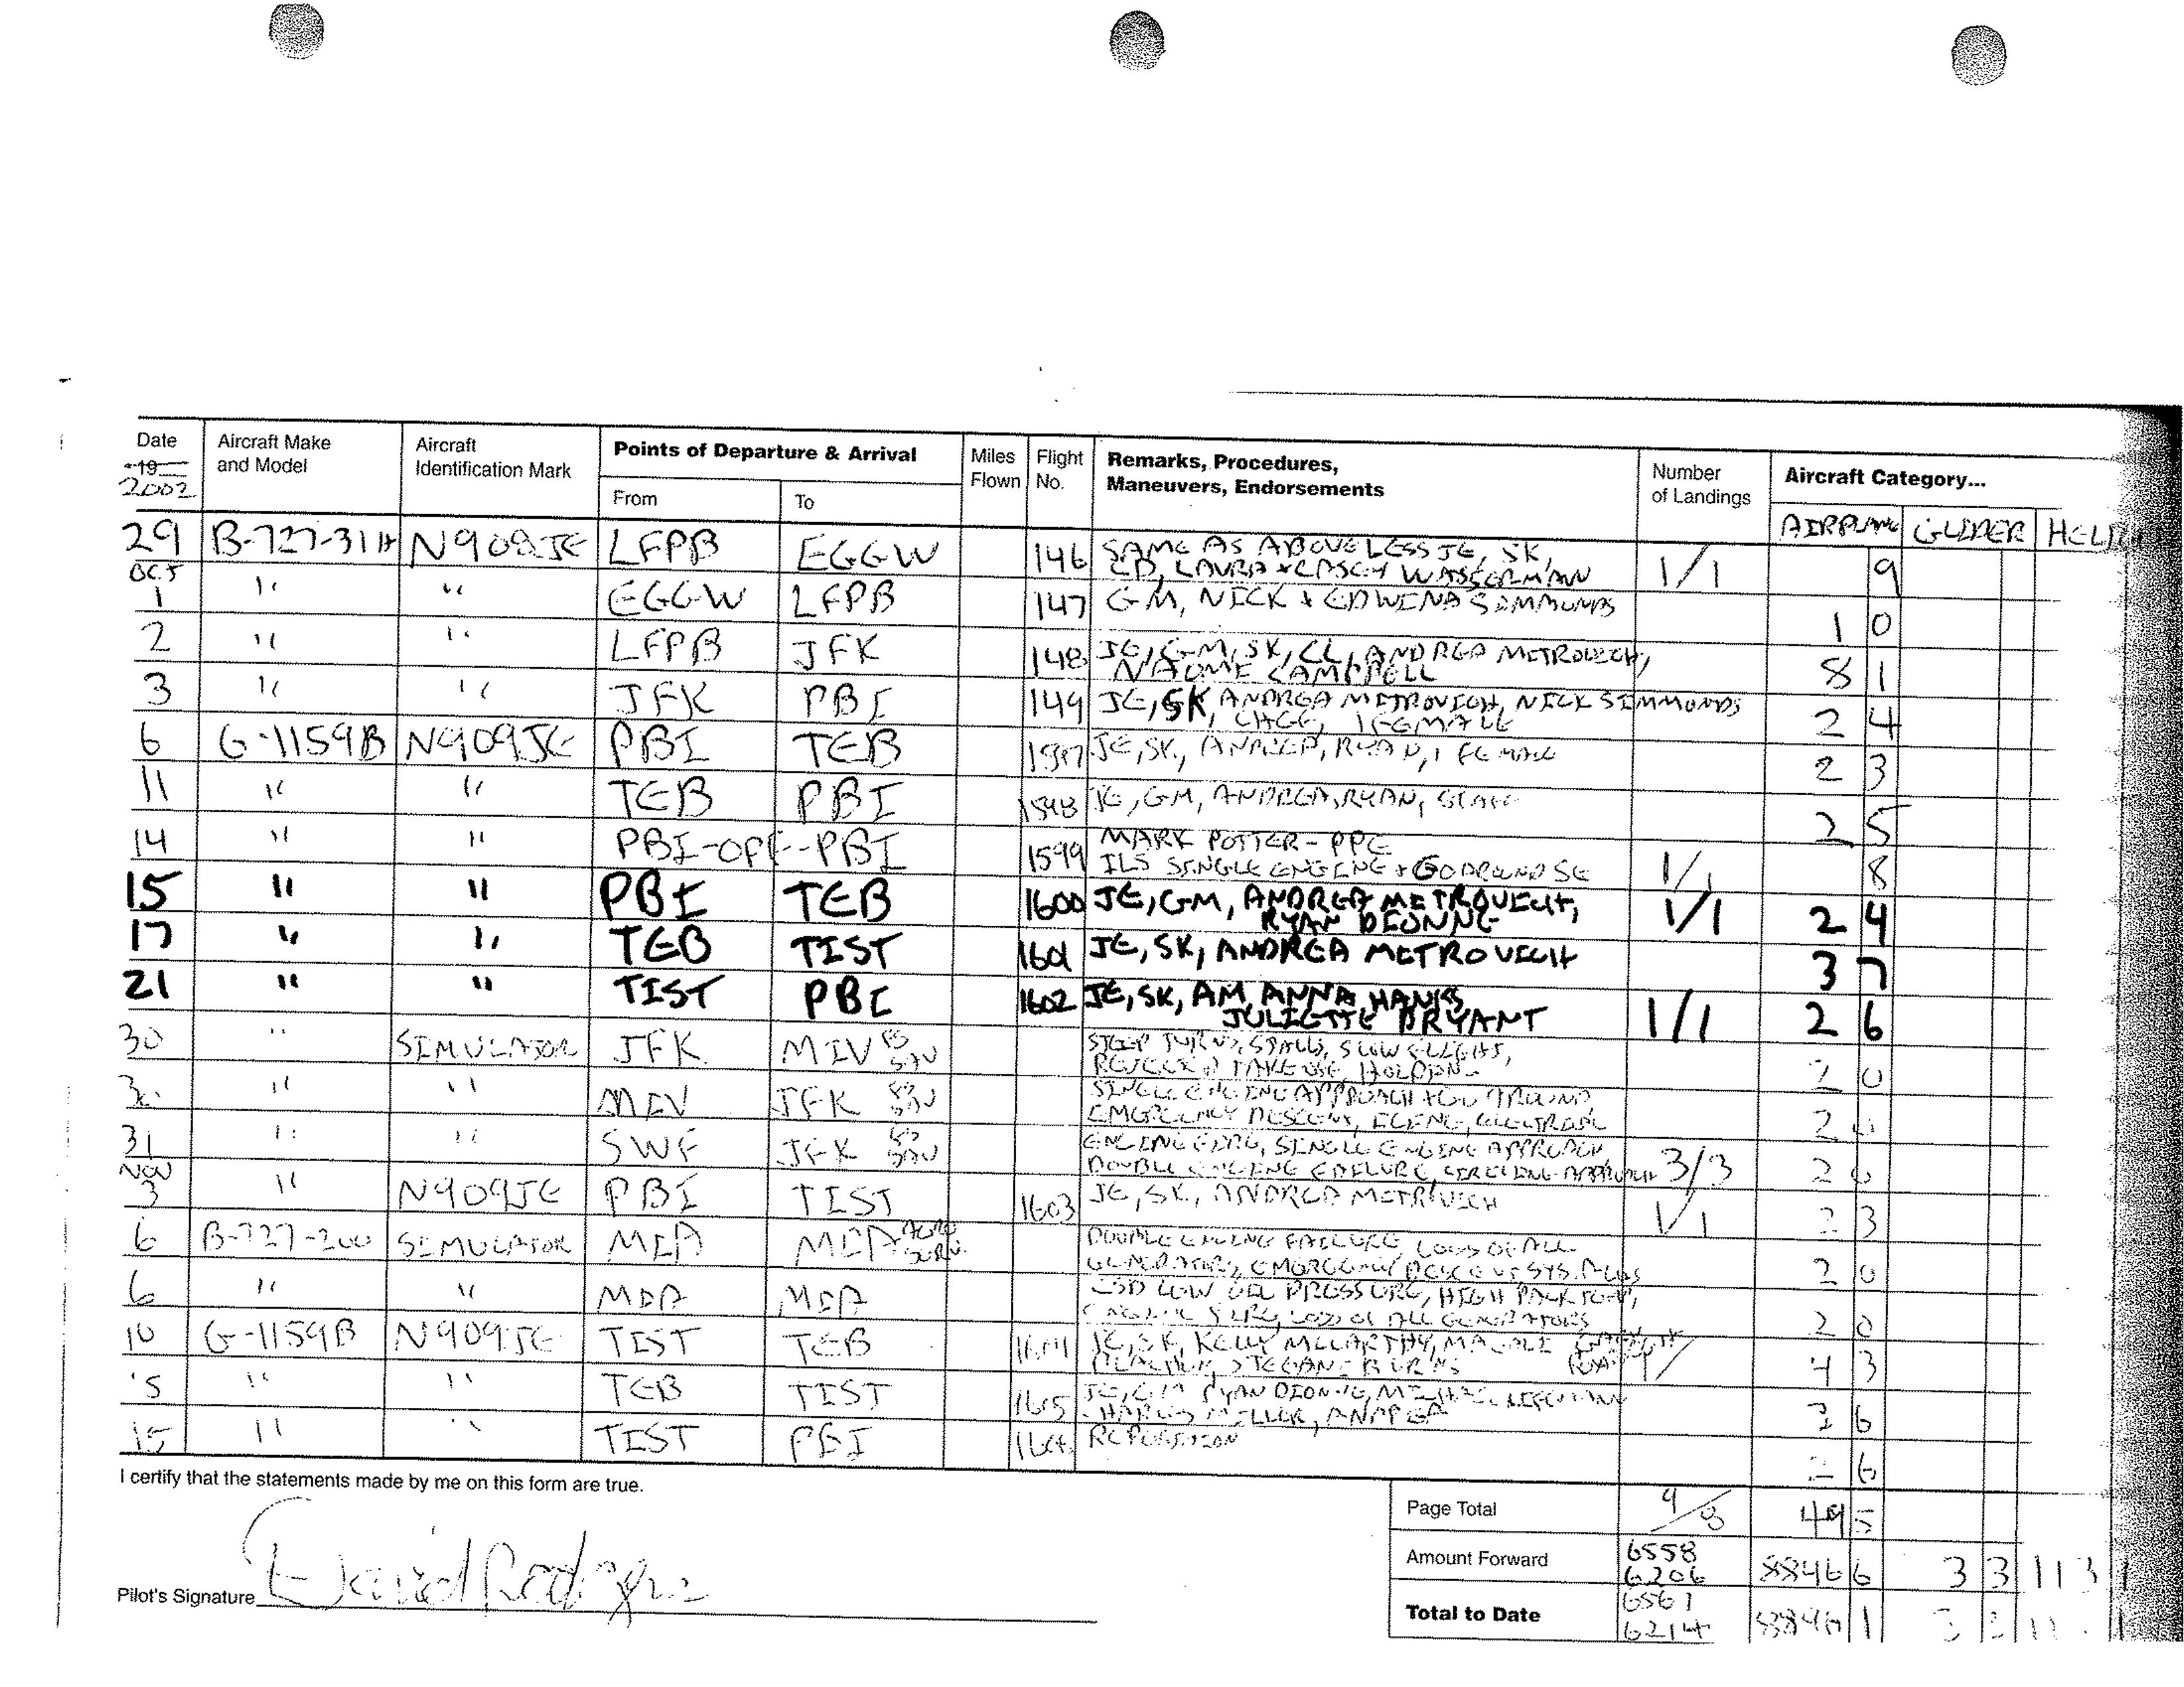 Date Aircraft Make and Model Aircraft Identification Mark Points of Departure & Arrival Miles Flown Flight No. Remarks, Procedures, Maneuvers, Endorsements Number of Landings Aircraft Category...
19 2002 From To AIRPLANE GLIDER
29 B-727-31H N908JE LFPB EGGW 146 SAME AS ABOVE LESS JE, SK, 1/1 9
LAURA & CASEY WASSERMANN
OCT
1 " " EGGW LFPB 147 GM, NICK & EDWINA SIMMONDS 1 0
2 " " LFPB JFK 148 JE, GM, SK, CL, ANDREA METROVICH, 8 1
NAOME CAMPBELL
3 " " JFK PBI 149 JE, SK, ANDREA METROVICH, NICK SIMMONDS 2 4
CHEF, 1 FEMALE
6 G-1159B N909JE PBI TEB JE, SK, ANDREA, RYAN, 1 FEMALE 2 3
11 " " TEB PBI JE, GM, ANDREA, RYAN, 2 5
14 " " PBI-OPF-PBI 1599 MARK POTTER-PPE 1/1 8
ILS SINGLE ENGINE & GO AROUND SE
15 " " PBI TEB 1600 JE, GM, ANDREA METROVICH, 1/1 2 4
RYAN DIONNE
17 " " TEB TIST 1601 JE, SK, ANDREA METROVICH 3 7
21 " " TIST PBI 1602 JE, SK, AM, ANNA HANKS 1/1 2 6
JULIETTE BRYANT
30 " SIMULATOR JFK MIV STEEP TURNS, STALLS, SLOW FLIGHT, 2 0
REJECTED TAKE OFF, HOLDING
30 " " MIV JFK SINGLE ENGINE APPROACH & GO AROUND 2 0
EMERGENCY DESCENT,
31 " " SWF JFK ENGINE FIRE, SINGLE ENGINE APPROACH 3/3 2 0
DOUBLE ENGINE FAILURE, CIRCLING APPROACH
NOV
3 " N909JE PBI TIST 1603 JE, SK, ANDREA METROVICH 1/1 2 3
6 B-727-200 SIMULATOR MIA MIA AERO SERV. DOUBLE ENGINE FAILURE, LOSS OF ALL 2 0
GENERATORS, EMERGENCY DESCENT
6 " " MIA MIA LOW OIL PRESSURE, HIGH PACK TEMP, 2 0
LOSS OF ALL GENERATORS
10 G-1159B N909JE TIST TEB 1604 JE, SK, KELLY MCCARTHY, 4 3
" " TEB TIST 1605 RYAN DIONNE, 3 6
MILLER, ANDREA
15 " " TIST PBI REPOSITION 2 6
I certify that the statements made by me on this form are true.
Page Total 9/8 49 5
Amount Forward 6558 6206 8846 6 3 3
Total to Date 6567 6214
Pilot's Signature